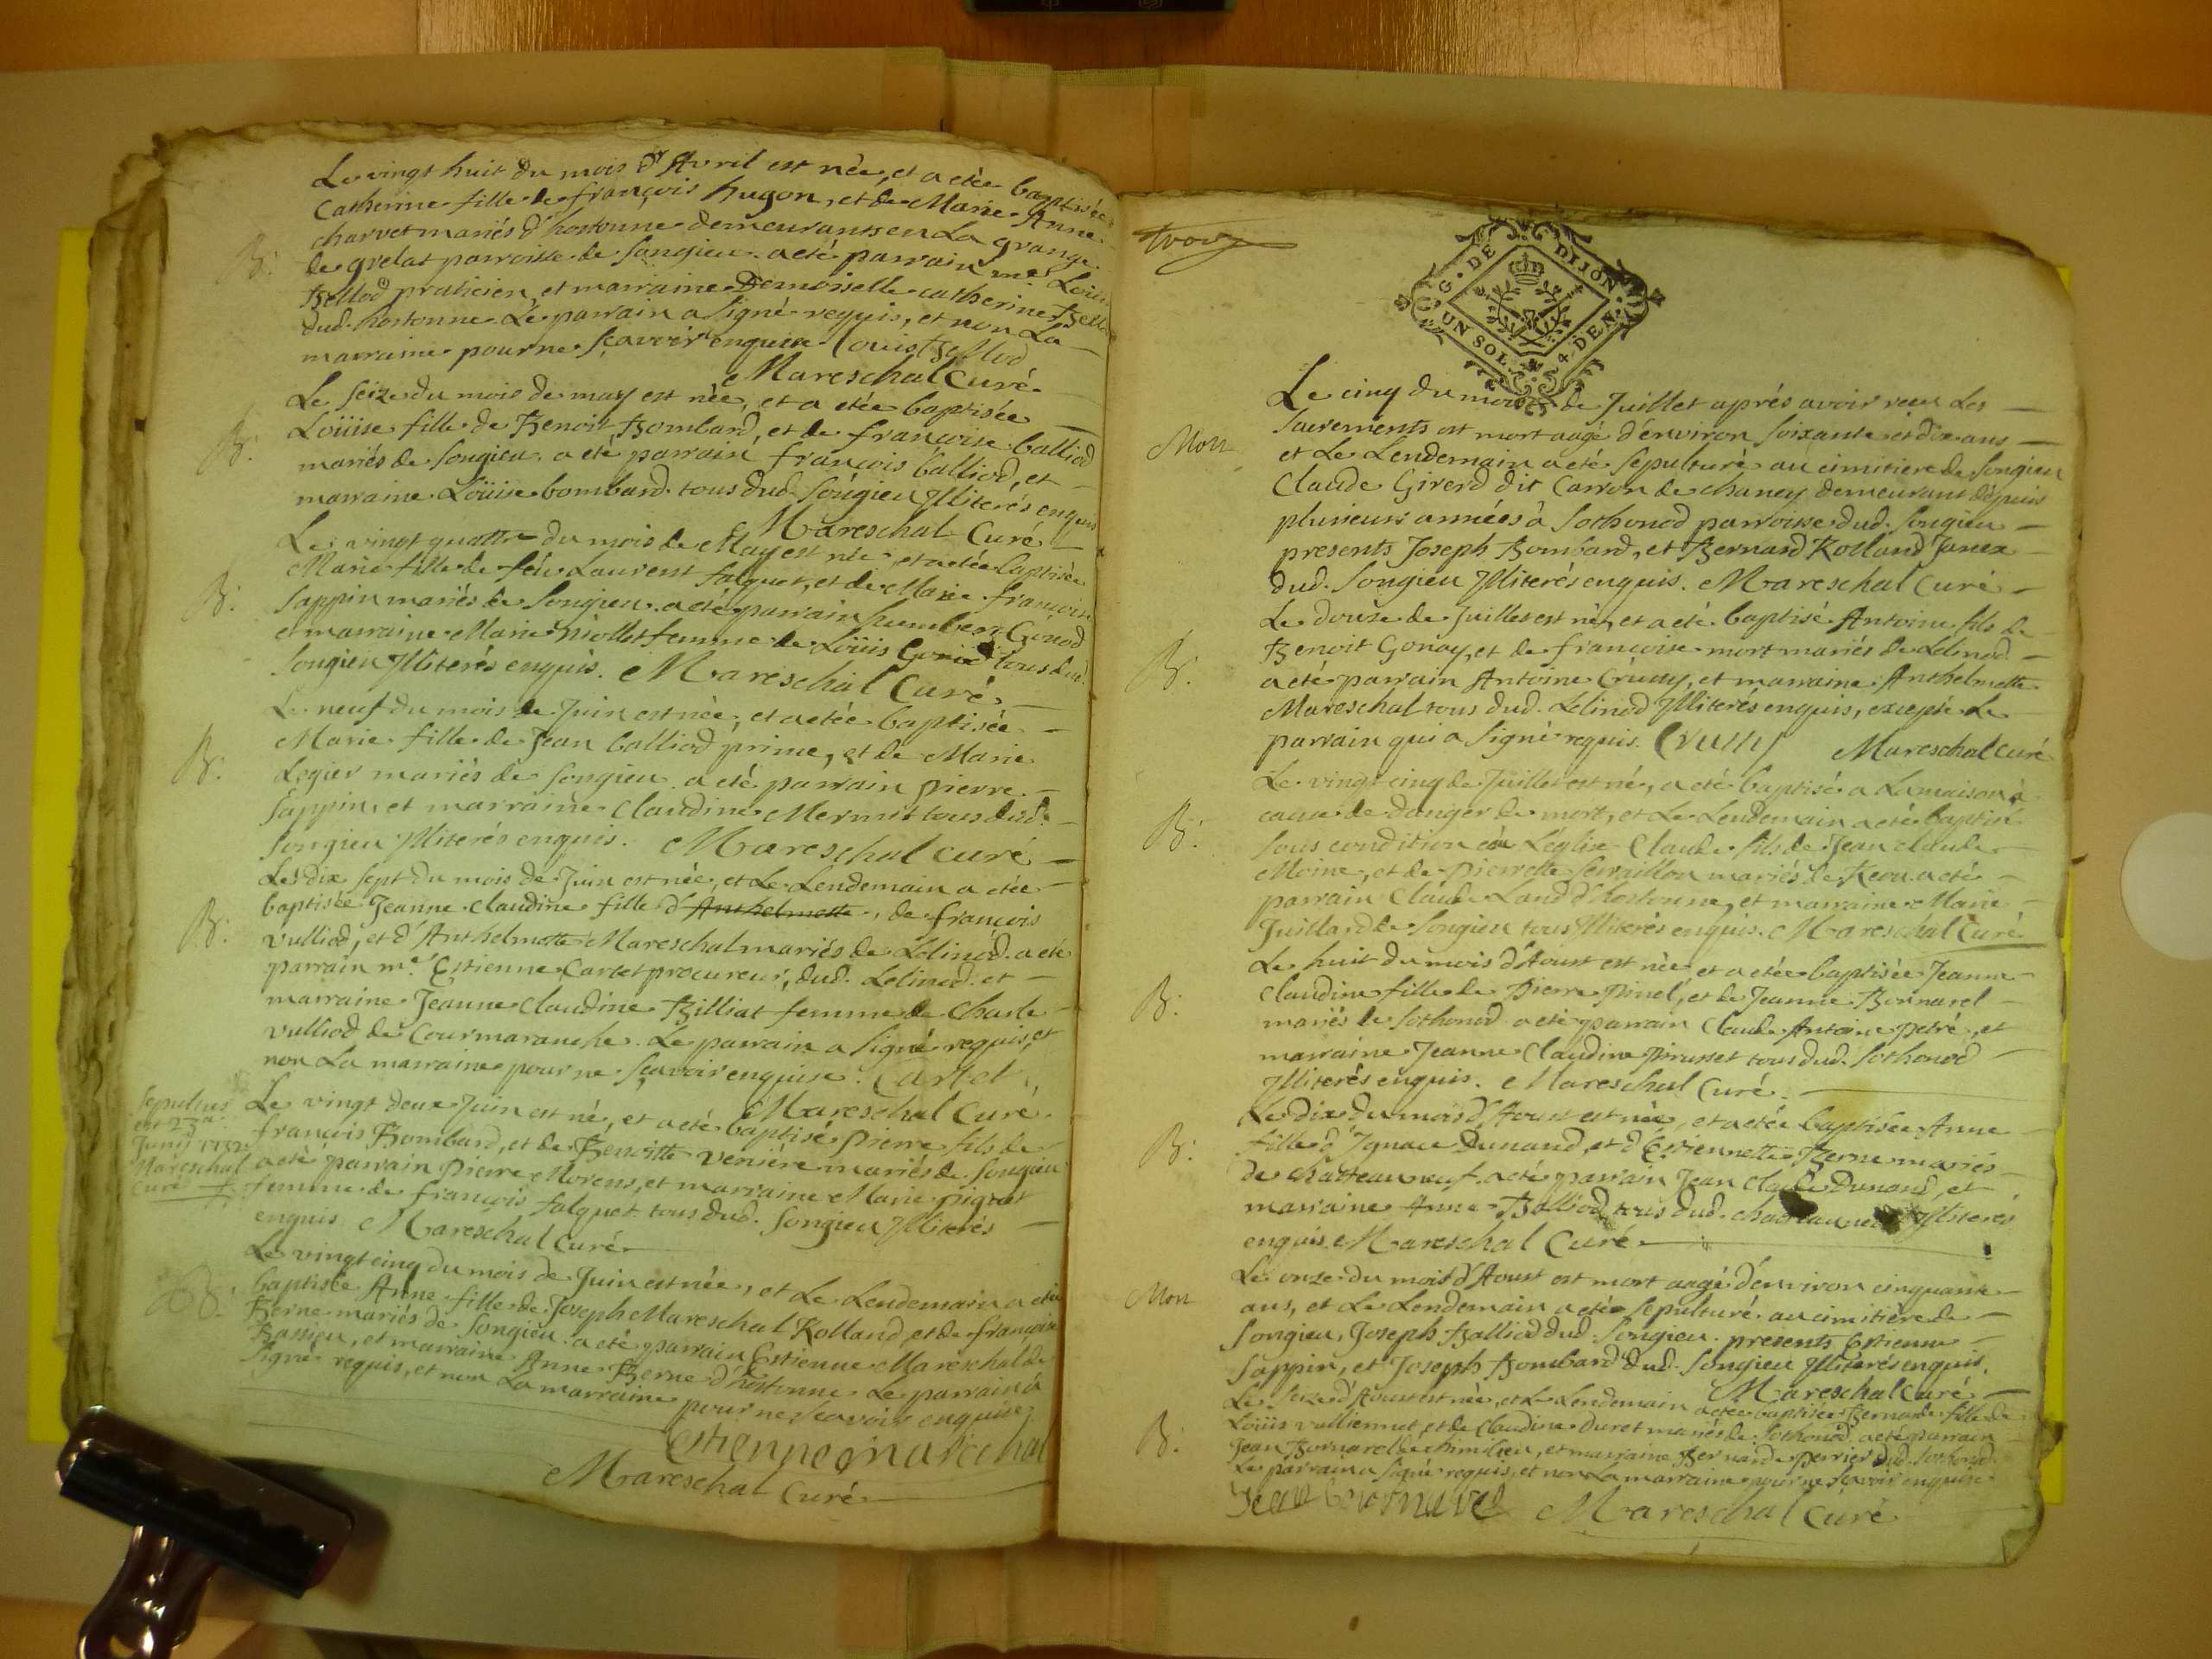 Le vingt huit du mois d'Avril est née, et a etée baptisée
Catherine fille de françois hugon, et de Marie Anne
charvet mariés d'hostonne demeurants en La grange
de grelat parroisse de Songieu. a eté parrain me. Louis
Bellod praticien, et marraine Demoiselle catherine Bell
dud. hostonne. Le parrain a signé requis, et non La
marraine pour ne sçavoir enquise Louis Bellod
Mareschal Curé
Le seize du mois de may est née, et a etée baptisée
B. Loüise fille de Benoit Bombard, et de françoise balliod
mariés de Songieu. a eté parrain françois balliod, et
marraine Loüise bombard. tous dud. Songieu Illiterés enquis
Mareschal Curé
Le vingt quattre du mois de May est née et a etée baptisée
Marie fille de feu Laurent falquet, et de Marie françoise
B. Sappin mariés de Songieu. a eté parrain humbert Ginod
et marraine Marie niollet femme de Loüis tous dud.
Songieu Illiterés enquis. Mareschal Curé
Le neuf du mois de Juin est née, et a etée baptisée
Marie fille de Jean balliod prime, et de Marie
B. Legier mariés de Songieu a eté parrain pierre
Sappin, et marraine Claudine Mermet tous dud.
Songieu Illiterés enquis. Mareschal curé
Le dix sept du mois de Juin est née, et Le Lendemain a etée
baptisée Jeanne Claudine fille d'Anthelmette, de françois
B. vulliod, et d'Anthelmette Mareschal mariés de Lelinod. a eté
parrain me. Estienne Cartet procureur, dud. Lelinod. et
marraine Jeanne Claudine Billiat femme de Charle
vulliod de Courmaranche. Le parrain a signé requis, et
non La marraine pour ne sçavoir enquise. Cartet
Mareschal Curé
Sepultus
est 23a
Junij 1732
Mareschal
Curé
Le vingt deux Juin est né, et a eté baptisé pierre fils de
françois Bombard, et de Benoitte veniére mariés de Songieu
a eté parrain pierre Morens, et marraine Marie pignat
femme de françois falquet tous dud. Songieu Illiterés
enquis Mareschal Curé
Le vingt cinq du mois de Juin est née, et Le Lendemain a etée
B. baptisée Anne fille de Joseph Mareschal Rolland, et de françoise
Berne mariés de Songieu a eté parrain Estienne Mareschal de
Bassieu, et marraine Anne Berne d'hostonne Le parrain a
signé requis, et non La marraine pour ne sçavoir enquise
Estienne marechal
Mareschal Curé
G. DE DIJON
UN SOL. 4 DEN.
Le cinq du mois de Juillet aprés avoir receu Les
Sacrements est mort aagé d'environ soixante et dix ans
Mort et Le Lendemain a eté sepulturé au cimitiere de Songieu
Claude Girerd dit Carron de chaney demeurant depuis
plusieurs années à Sothonod parroisse dud. Songieu
presents Joseph Bombard, et Bernard Rolland Janex
dud. Songieu Illiterés enquis. Mareschal Curé
Le douze de Juillet est né, et a eté baptisé Antoine fils de
B. Benoit Gonay, et de françoise mort mariés de Lelinod
a eté parrain Antoine Crussy, et marraine Anthelmette
Mareschal tous dud. Lelinod Illiterés enquis, excepté Le
parrain qui a signé requis. Crussy Mareschal curé
Le vingt cinq de Juillet est né, a eté baptisé a La maison à
cause de danger de mort, et Le Lendemain a eté baptisé
B. sous condition en L'église Claude fils de Jean Claude
Moine, et de Pierrette Servaillon mariés de a eté
parrain Claude Land d'hostonne, et marraine Marie
Juillard de Songieu tous Illiterés enquis. Mareschal Curé
Le huit du mois d'Aoust est née et a etée baptisée Jeanne
B. Claudine fille de Pierre pinel, et de Jeanne Bornarel
mariés de Sothonod a eté parrain Claude Antoine petré, et
marraine Jeanne Claudine tous dud. Sothonod
Illiterés enquis. Mareschal Curé
Le dix du mois d'Aoust est née, et a etée baptisée Anne
B. fille d'Ignace Dunand, et d'Estiennette Berne mariés
de Chatteauneuf. a eté parrain Jean Claude Dunand, et
marraine Anne Balliod tous dud. chatteauneuf Illiterés
enquis Mareschal Curé
Le onze du mois d'Aoust est mort aagé d'environ cinquante
Mort ans, et Le Lendemain a eté sepulturé au cimitière de
Songieu, Joseph Balliod dud. Songieu. presents Estienne
Sappin, et Joseph Bombard dud. Songieu Illiterés enquis.
Mareschal Curé
Le seize d'Aoust est née, et Le Lendemain a etée baptisée Bernarde fille de
B. Loüis vulliermet, et de Claudine Duret mariés de Sothonod. a eté parrain
Jean Bornarel de chimilieu, et marraine Bernarde perrier dud. Sothonod
Le parrain a signé requis, et non La marraine pour ne sçavoir enquise
Jean bornarel Mareschal Curé